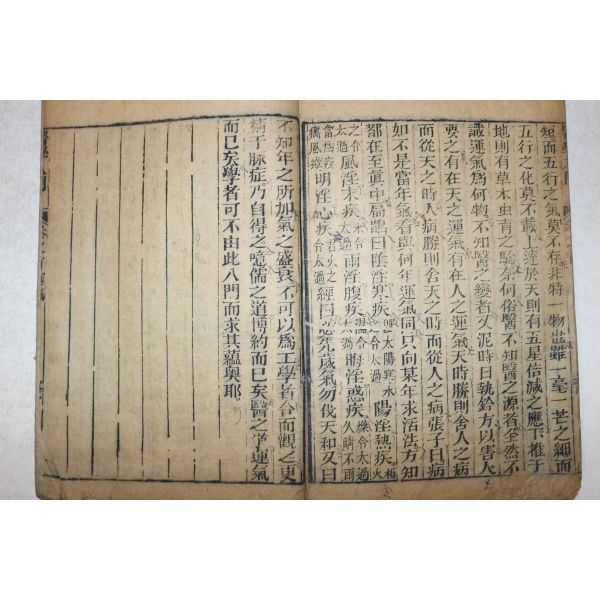 短而五行之氣莫不存非特一物爲雖一毫一芒之細而
五行之化莫不載上達於天則有五星信減之應下推于
地則有草木虫育之驗奈何俗醫不知醫之源者全然不
識運氣爲何物不知醫之變者又泥時日執鈐方以害人
要之有在天之運氣有在人之運氣天時勝則舍人之病
而從天之時人病勝則舍天之時而從人之病張子曰病
如不是當年氣看與何年運氣同只向某年求活法方知
都在至眞中扁鵲曰陰淫寒疾太陽寒水之令太過陽淫熱疾相火之令太過
風淫末疾雨淫腹疾晦淫惑疾燥令太過久晴不雨
當爲疫癘風痱明淫心疾君火之令太過經曰必先歲氣勿伐天和又曰
不知年之所加氣之盛衰不可以爲工學者合而觀之更
於脉症乃自得之噫儒之道博約而已矣醫之道運氣
而已矣學者可不由此八門而求其蘊奥耶